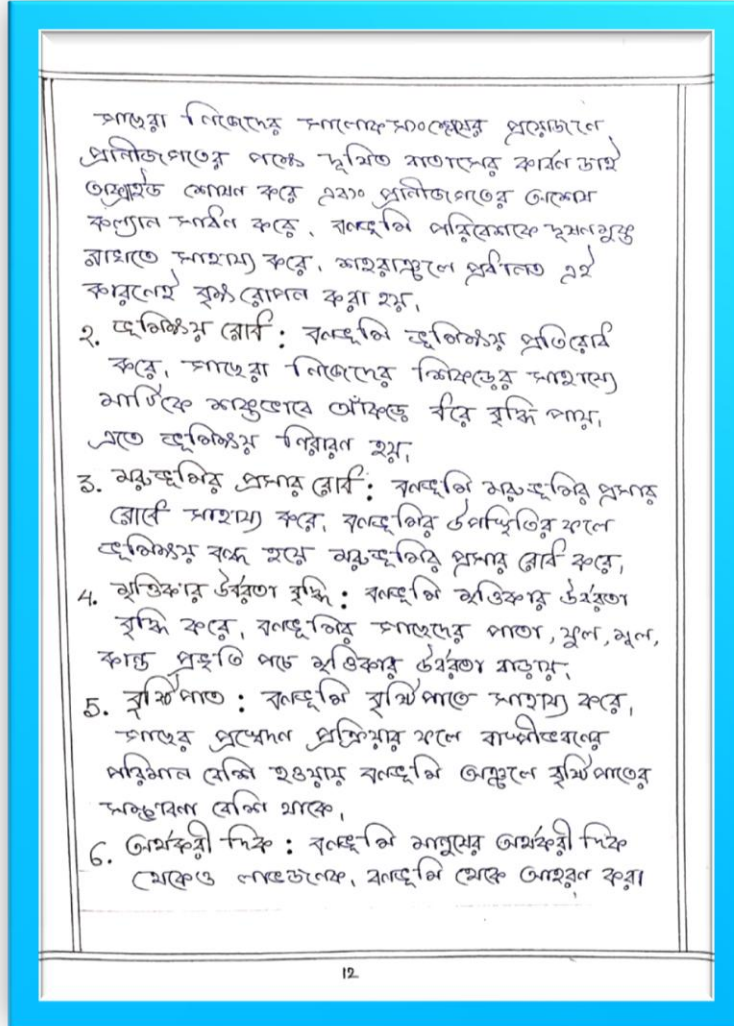 গাছেরা নিজেদের সালোকসংশ্লেষের প্রয়োজনে
প্রানীজগতের পক্ষে দূষিত বাতাসের কার্বন ডাই
অক্সাইড শোষন করে এবং প্রানীজগতের অশেষ
কল্যান সাধন করে, বনভূমি পরিবেশকে দূষনমুক্ত
রাখতে সাহায্য করে, শহরাঞ্চলে প্রধানত এই
কারনেই বৃক্ষ রোপন করা হয়,
২. ভূমিক্ষয় রোধ : বনভূমি ভূমিক্ষয় প্রতিরোধ
করে, গাছেরা নিজেদের শিকড়ের সাহায্যে
মাটিকে শক্তভাবে আঁকড়ে ধরে বৃদ্ধি পায়,
এতে ভূমিক্ষয় নিবারন হয়,
3. মরুভূমির প্রসার রোধ : বনভূমি মরুভূমির প্রসার
রোধে সাহায্য করে, বনভূমির উপস্থিতির ফলে
ভূমিক্ষয় বন্ধ হয়ে মরুভূমির প্রসার রোধ করে,
4. মৃত্তিকার উর্বরতা বৃদ্ধি : বনভূমি মৃত্তিকার উর্বরতা
বৃদ্ধি করে, বনভূমির গাছেদের পাতা, ফুল, মূল,
কান্ড প্রভৃতি পচে মৃত্তিকার উর্বরতা বাড়ায়,
5. বৃষ্টিপাত : বনভূমি বৃষ্টিপাতে সাহায্য করে,
গাছের প্রস্বেদন প্রক্রিয়ার ফলে বাষ্পীভবনের
পরিমান বেশি হওয়ায় বনভূমি অঞ্চলে বৃষ্টিপাতের
সম্ভাবনা বেশি থাকে,
6. অর্থকরী দিক : বনভূমি মানুষের অর্থকরী দিক
থেকেও লাভজনক, বনভূমি থেকে আহরণ করা
12